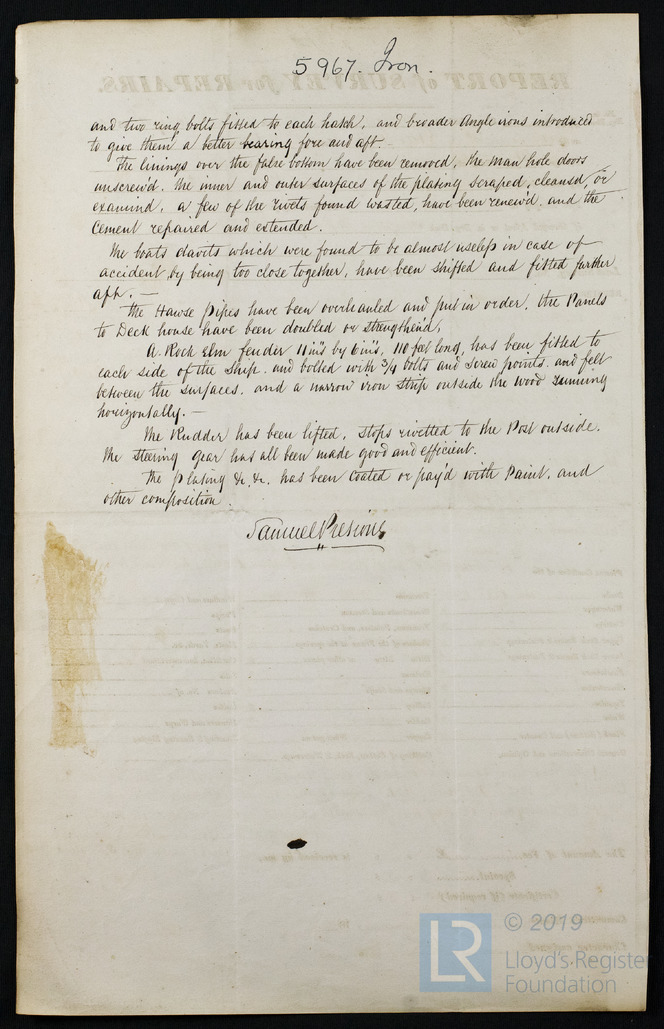 5967. Iron.
and two ring bolts fitted to each hatch, and broader Angle irons introduced
to give them a better bearing fore and aft.
The linings over the false bottom have been removed, the Man hole doors
unscrew'd, the inner and outer surfaces of the plating scraped, cleansd, or
examind, a few of the rivets found wasted, have been renew'd, and the
Cement repaired and extended.
The boats davits which were found to be almost useless in case of
accident by being too close together, have been shifted and fitted further
aft. —
The Hawse pipes have been overhauled and put in order, the Panels
to Deck house have been doubled or strengthen'd,
A Rock Elm fender 11 ins by 6 ins, 110 feet long, has been fitted to
each side of the ship, and bolted with 3/4 bolts and screw points, and felt
between the surfaces, and a narrow iron strap outside the wood running
horizontally. —
The Rudder has been lifted, stops rivetted to the Post outside.
The steering gear has all been made good and efficient.
The plating &c. &c. has been coated or pay'd with Paint, and
other composition.
Samuel Presious
© 2019
LR
Lloyd's Register
Foundation